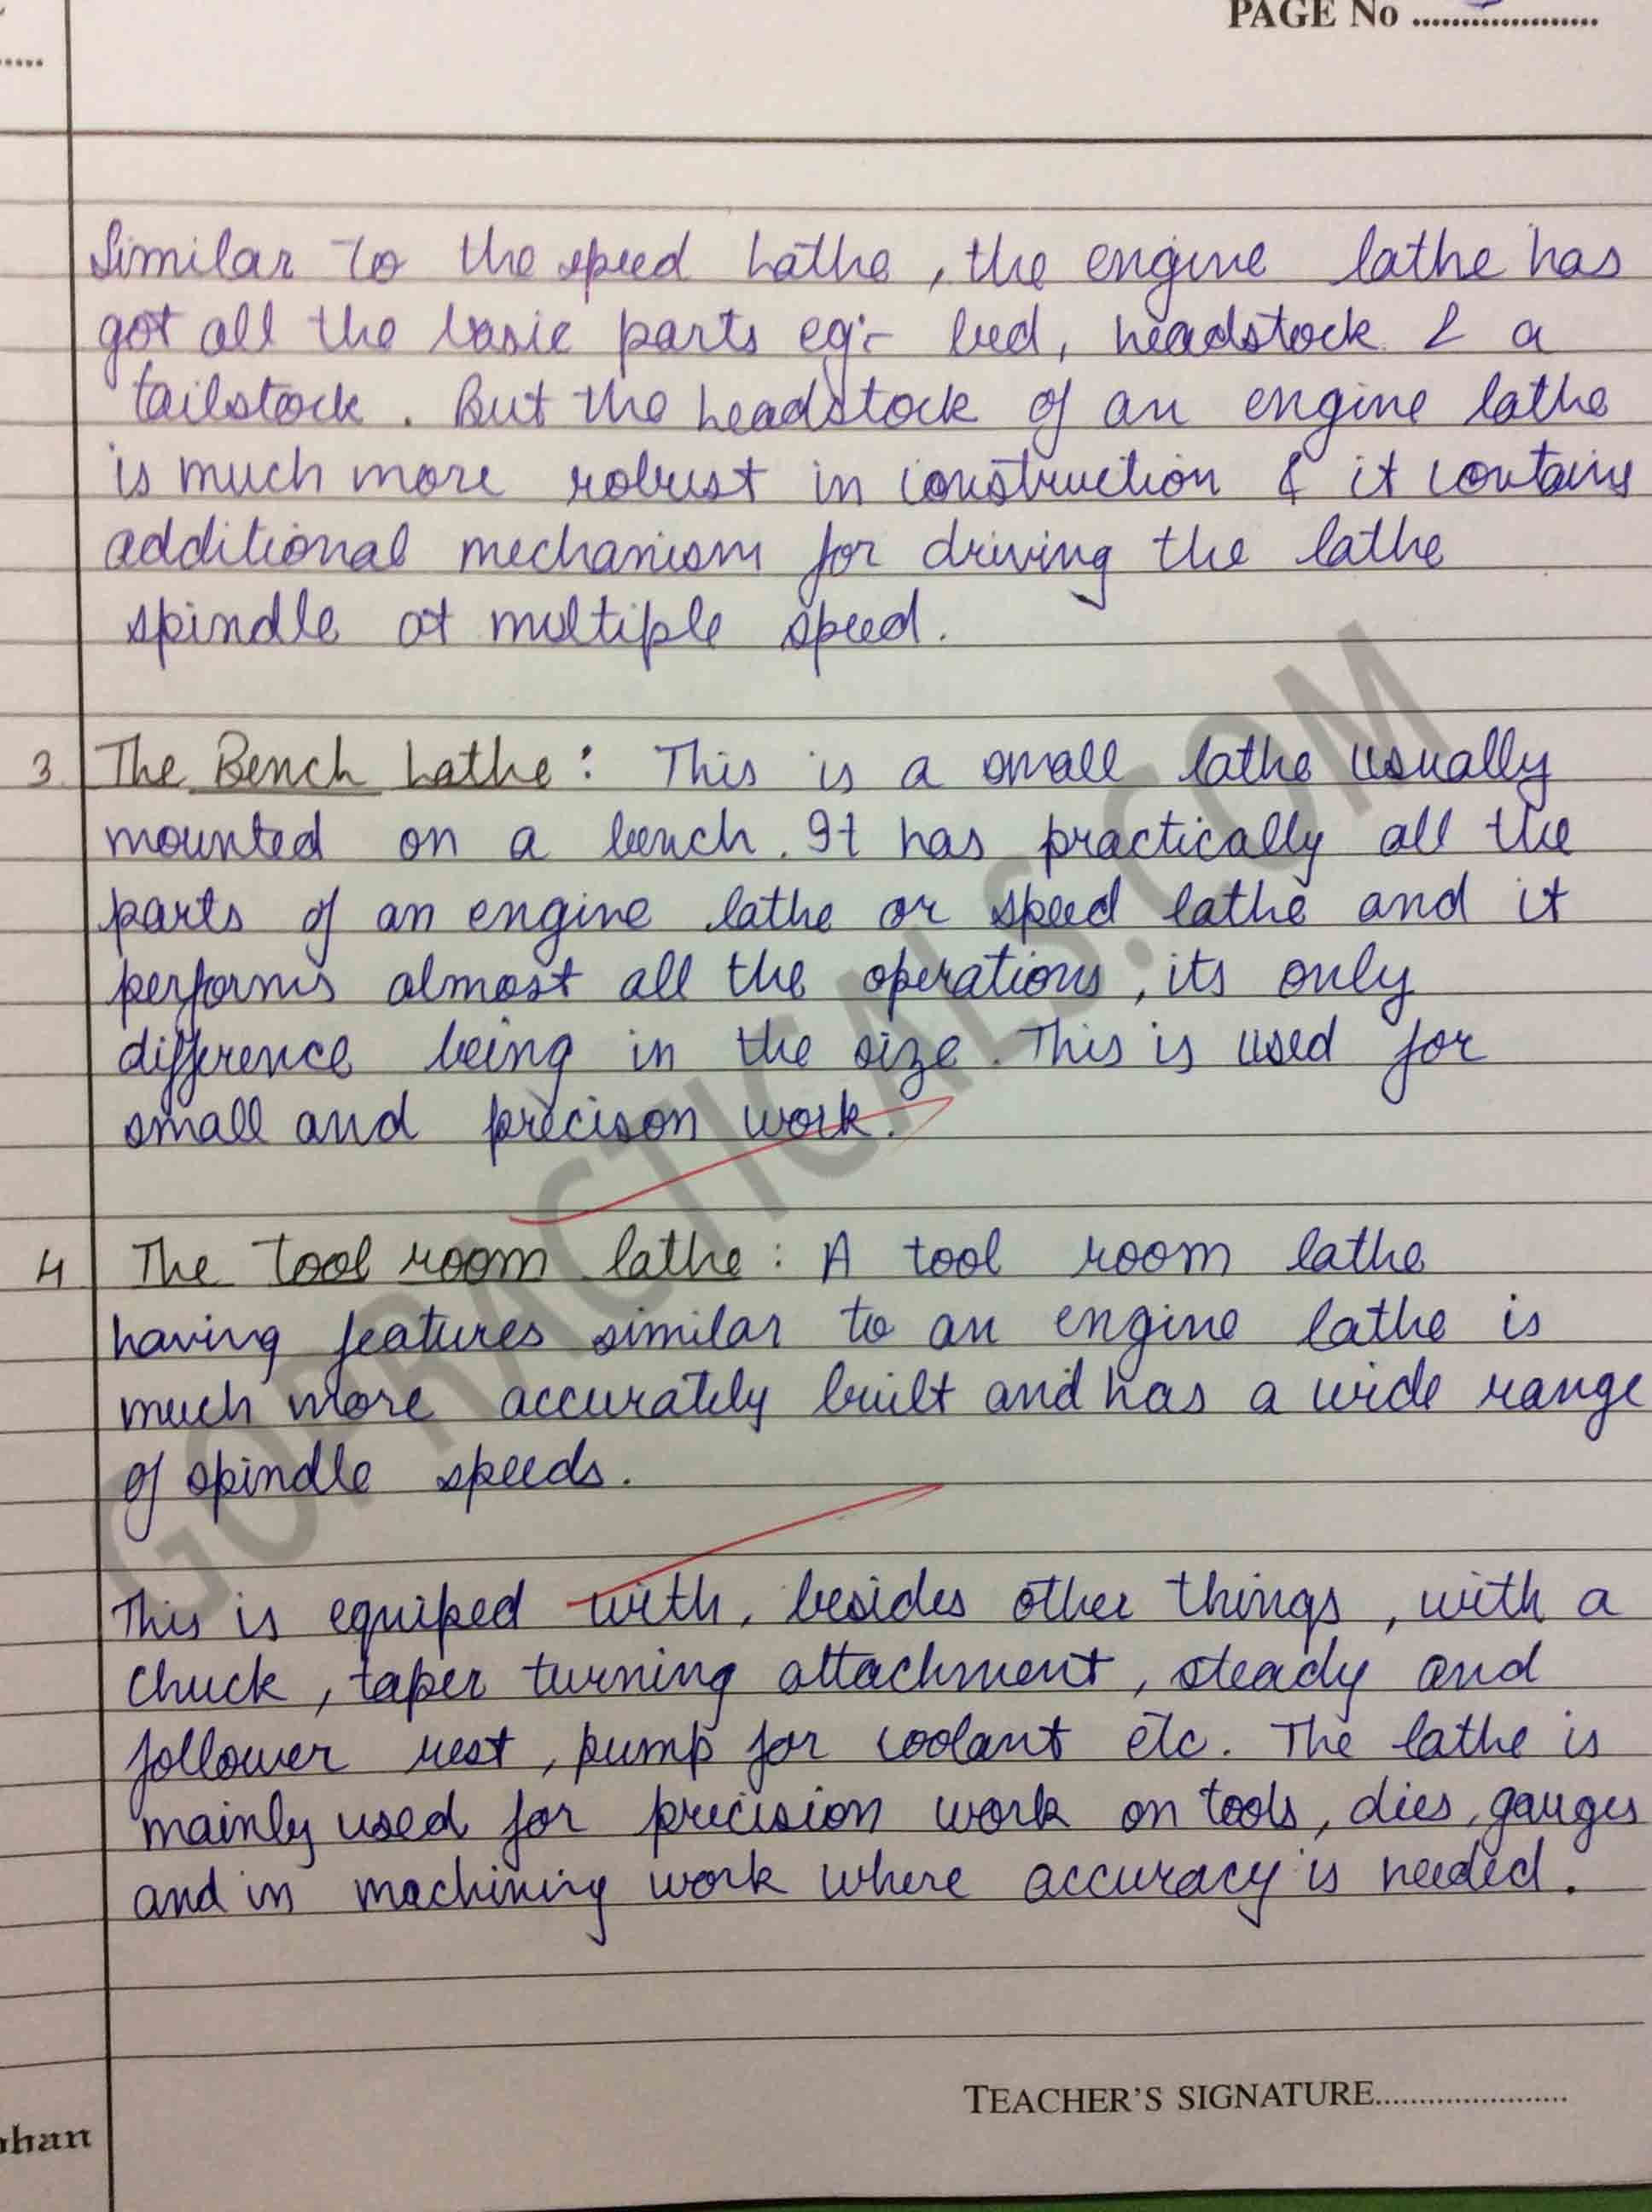 PAGE No ....................
Similar To the speed Lathe, the engine lathe has
got all the basic parts eg:- bed, headstock & a
tailstock. But the headstock of an engine lathe
is much more robust in construction & it contains
additional mechanism for driving the lathe
spindle at multiple speed.
3. The Bench Lathe: This is a small lathe usually
mounted on a bench. It has practically all the
parts of an engine lathe or speed lathe and it
performs almost all the operations, its only
difference being in the size. This is used for
small and precison work.
4 The Tool room lathe: A tool room lathe
having features similar to an engine lathe is
much more accurately built and has a wide range
of spindle speeds.
This is equiped with, besides other things, with a
chuck, taper turning attachment, steady and
follower rest, pump for coolant etc. The lathe is
mainly used for precision work on tools, dies, gauges
and in machining work where accuracy is needed.
TEACHER'S SIGNATURE......................
ohan
GOPRACTICALS.COM